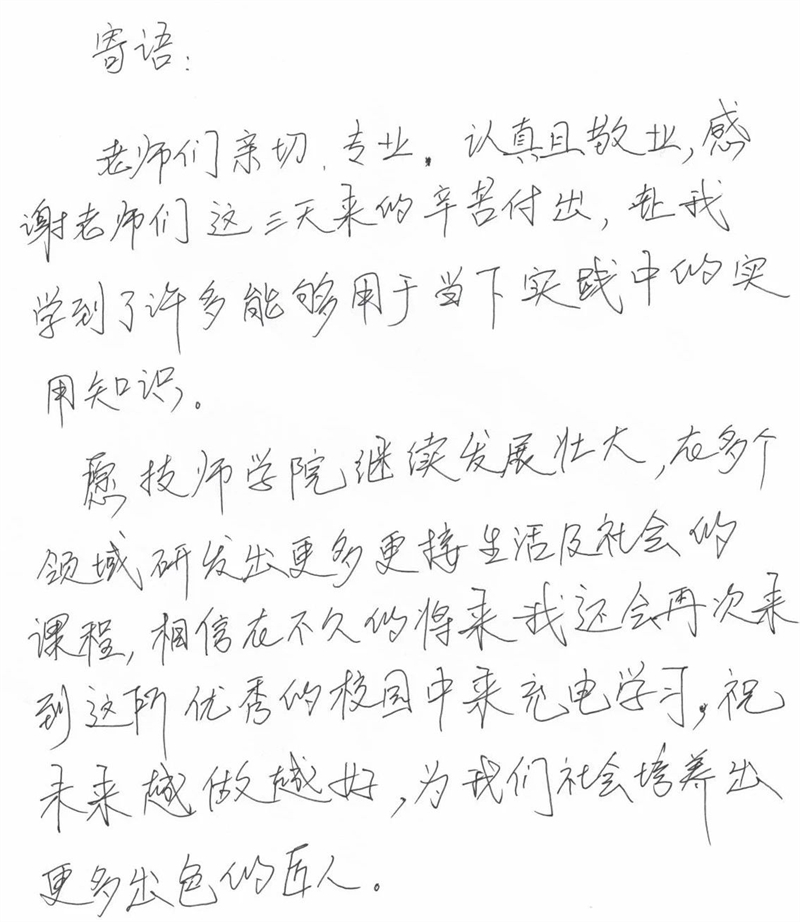 寄语：
老师们亲切、专业。认真且敬业，感
谢老师们这三天来的辛苦付出，让我
学到了许多能够用于当下实践中的实
用知识。
愿技师学院继续发展壮大，在多个
领域研发出更多更接生活及社会的
课程，相信在不久的将来我还会再次来
到这所优秀的校园中来充电学习。祝
未来越做越好，为我们社会培养出
更多出色的匠人。